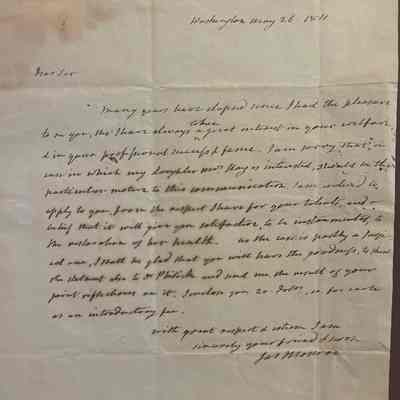 Washington May 26 1811
Dear Sir
Many years have elapsed since I had the pleasure
to see you, tho' I have always taken a great interest in your welfare,
& in your professional success & fame. I am sorry that a
case in which my daughter Mrs Hay is interested, should be the
particular motive to this communication. I am induced to
apply to you, from the respect I have for your talents, and a
belief that it will give you satisfaction, to be instrumental, to
the restoration of her health. As the case is partly a surgi
cal one, I shall be glad that you will have the goodness, to shew
the statement also to Dr Physick and send me the result of your
joint reflections on it. I enclose you 20. dolrs.
as an introductory fee.
with great respect & esteem I am
sincerely your friend & servt
Jas Monroe